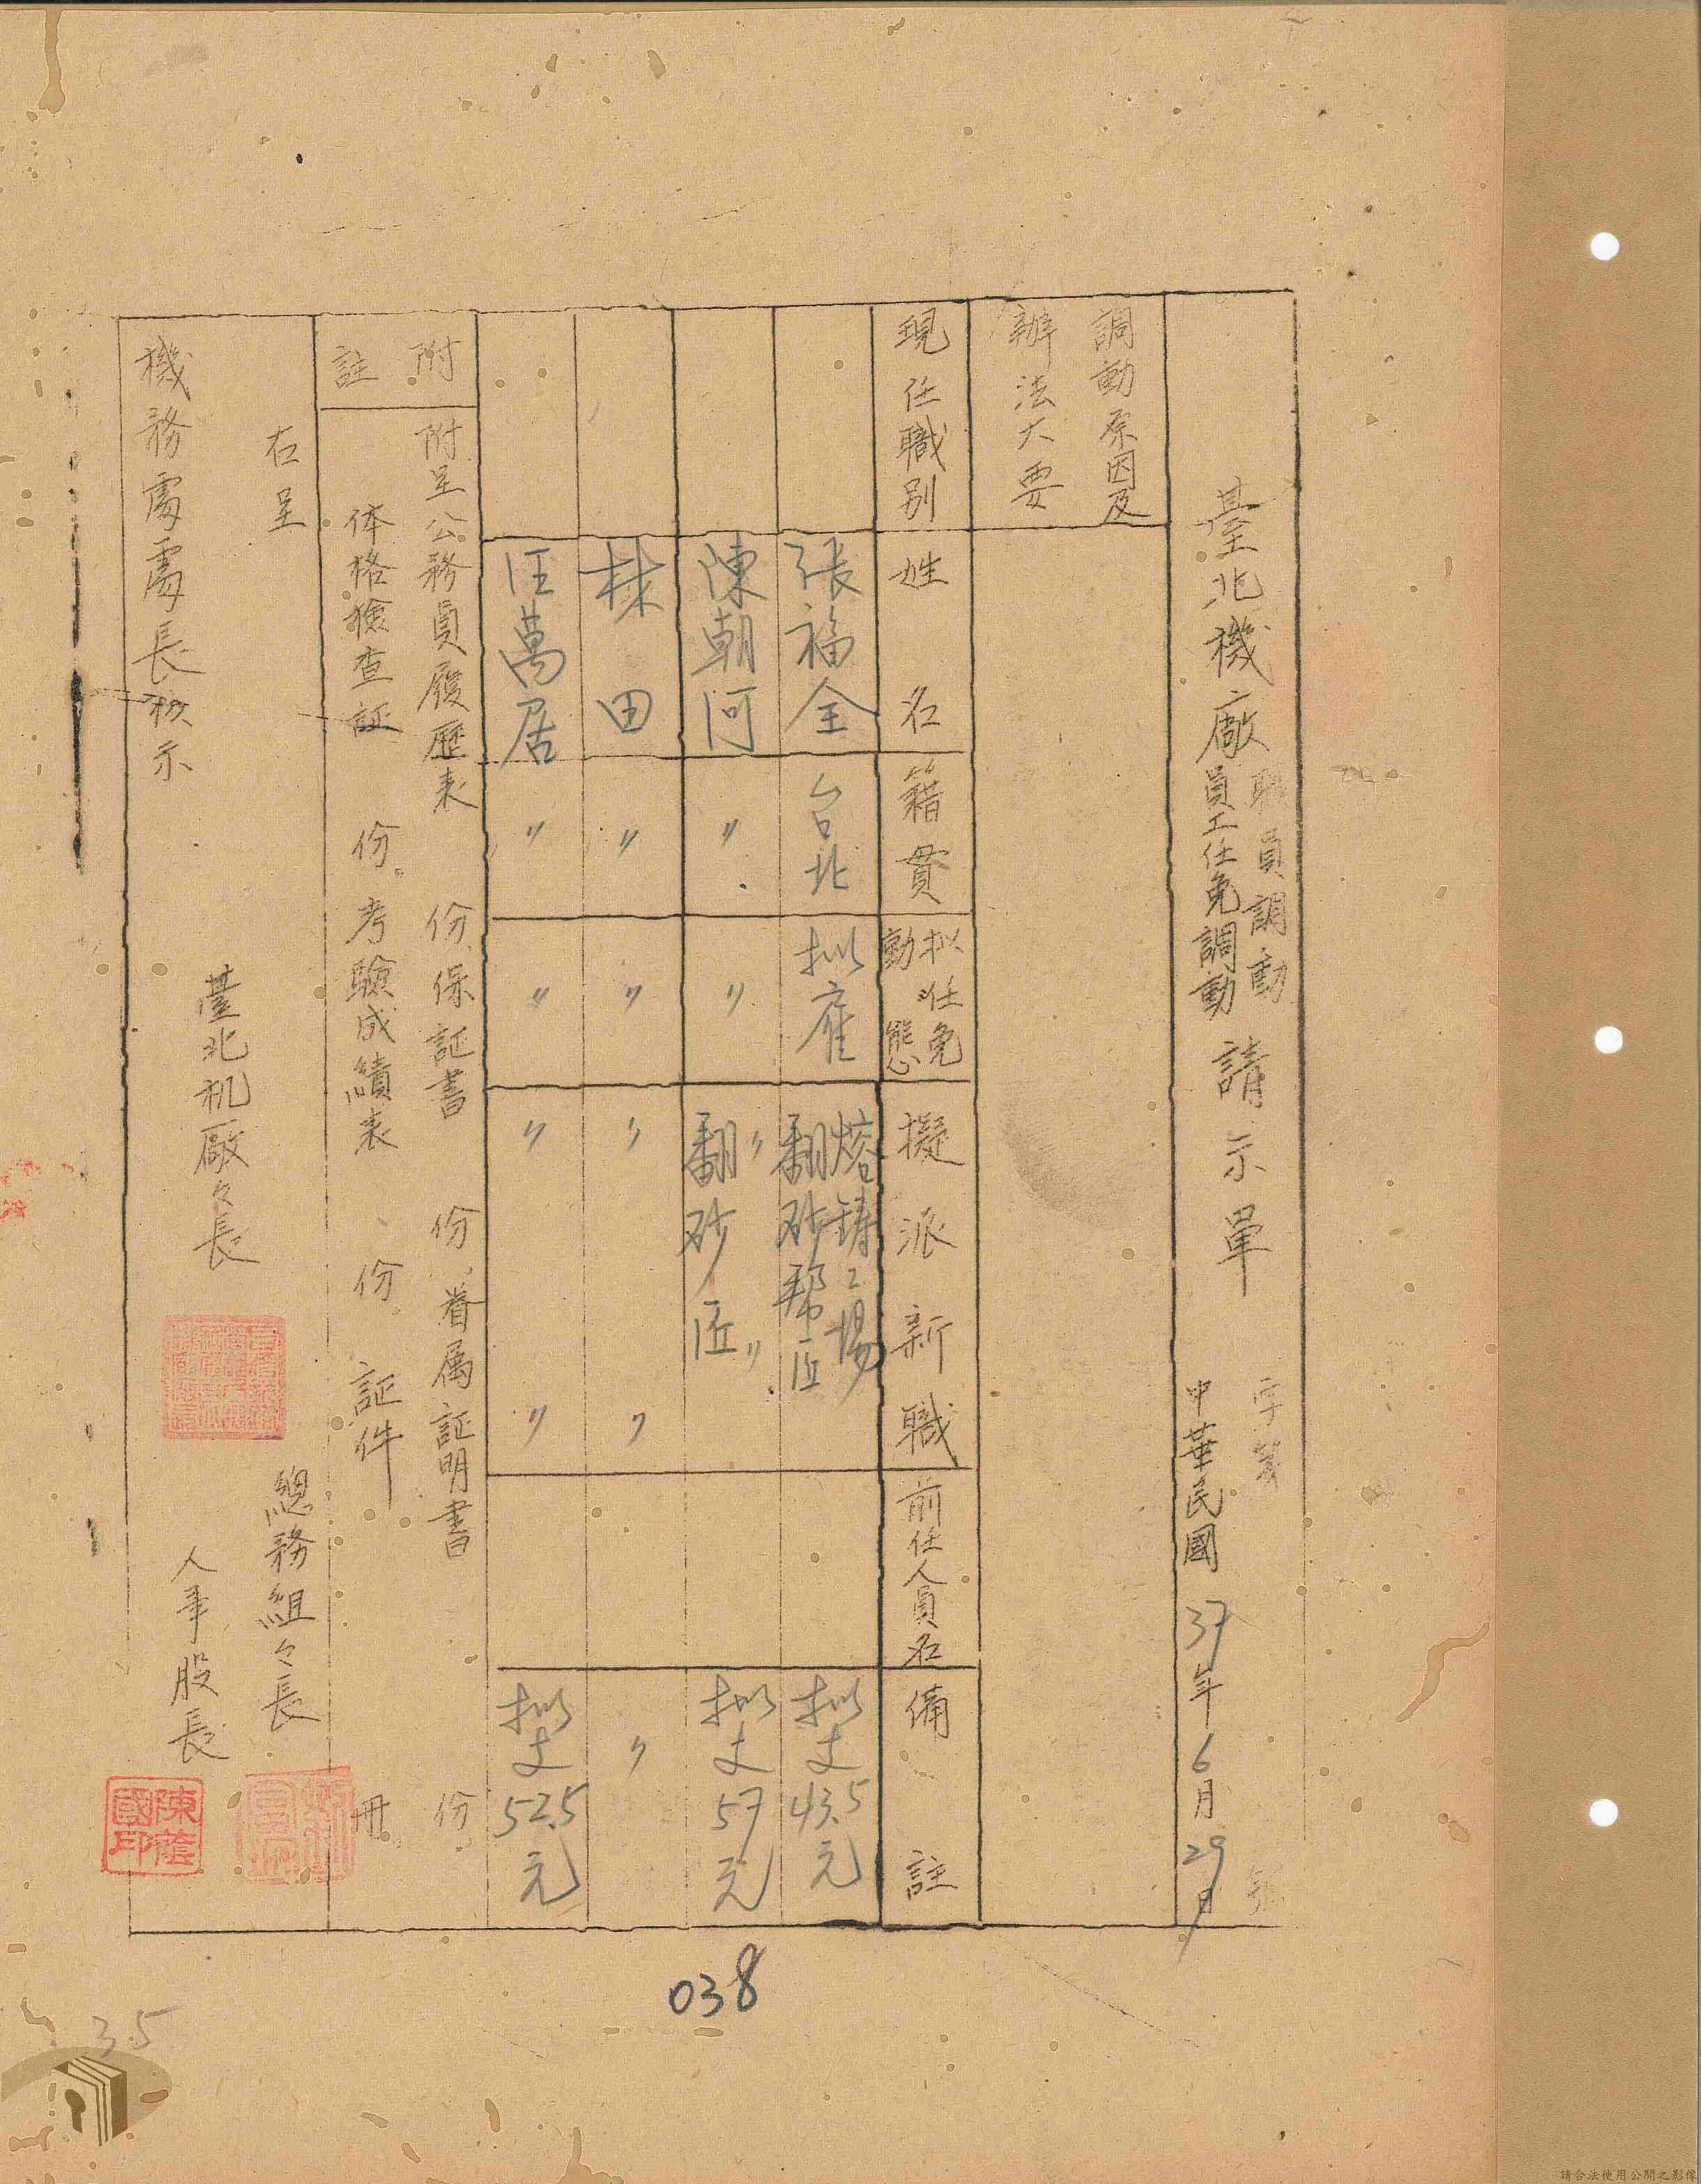 臺北機廠員工任免調動請示單
職員調動
字第 號
中華民國37年6月29日
調動原因及
辦法大要
現任職別 姓名 籍貫 拟任免動態 擬派新職 前任人員名 備註
張福全 台北 拟雇 熔鑄工場翻砂幫匠 拟支43.5元
陳朝河 〃 〃 〃翻砂匠〃 拟支57元
林田 〃 〃 〃 〃 〃
汪萬居 〃 〃 〃 〃 拟支52.5元
附註
附呈公務員履歷表 份、保証書 份、眷属証明書 份
体格檢查証 份。考驗成績表 份 証件 冊
右呈
機務處處長核示
臺北机廠々長
總務組々長
人事股長
陳蔭國印
038
35
請合法使用公開之影像